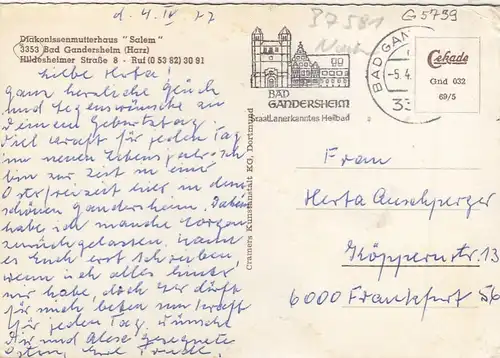 d. 4. IV 77
B7581
G5759
Diakonissenmutterhaus "Salem"
3353 Bad Gandersheim (Harz)
Hildesheimer Straße 8 - Ruf (0 53 82) 30 91
Liebe Herta!
Ganz herzliche Glück
und Segenswünsche an
Deinem Geburtstag.
Viel Kraft für jeden Tag
im neuen Lebensjahr. Ich
bin zur Zeit in einer
Osterfreizeit hier in dem
schönen Gandersheim. Dabei
habe ich manche Sorgen
zurückgelassen. Kann
es Euch erst schreiben,
wenn ich alles hinter
mir habe, doch Ihr dürft
für mich beten um Kraft
für jeden Tag. Wünsche
Dir und alle gesegnete
Ostern, Eure
BAD
GANDERSHEIM
Staatl.anerkanntes Heilbad
BAD GAN
-5.4.
33
Cekade
Gnd 032
69/5
Cramers Kunstanstalt KG, Dortmund
Frau
Herta Auschperger
Köppernstr 13
6000 Frankfurt 56